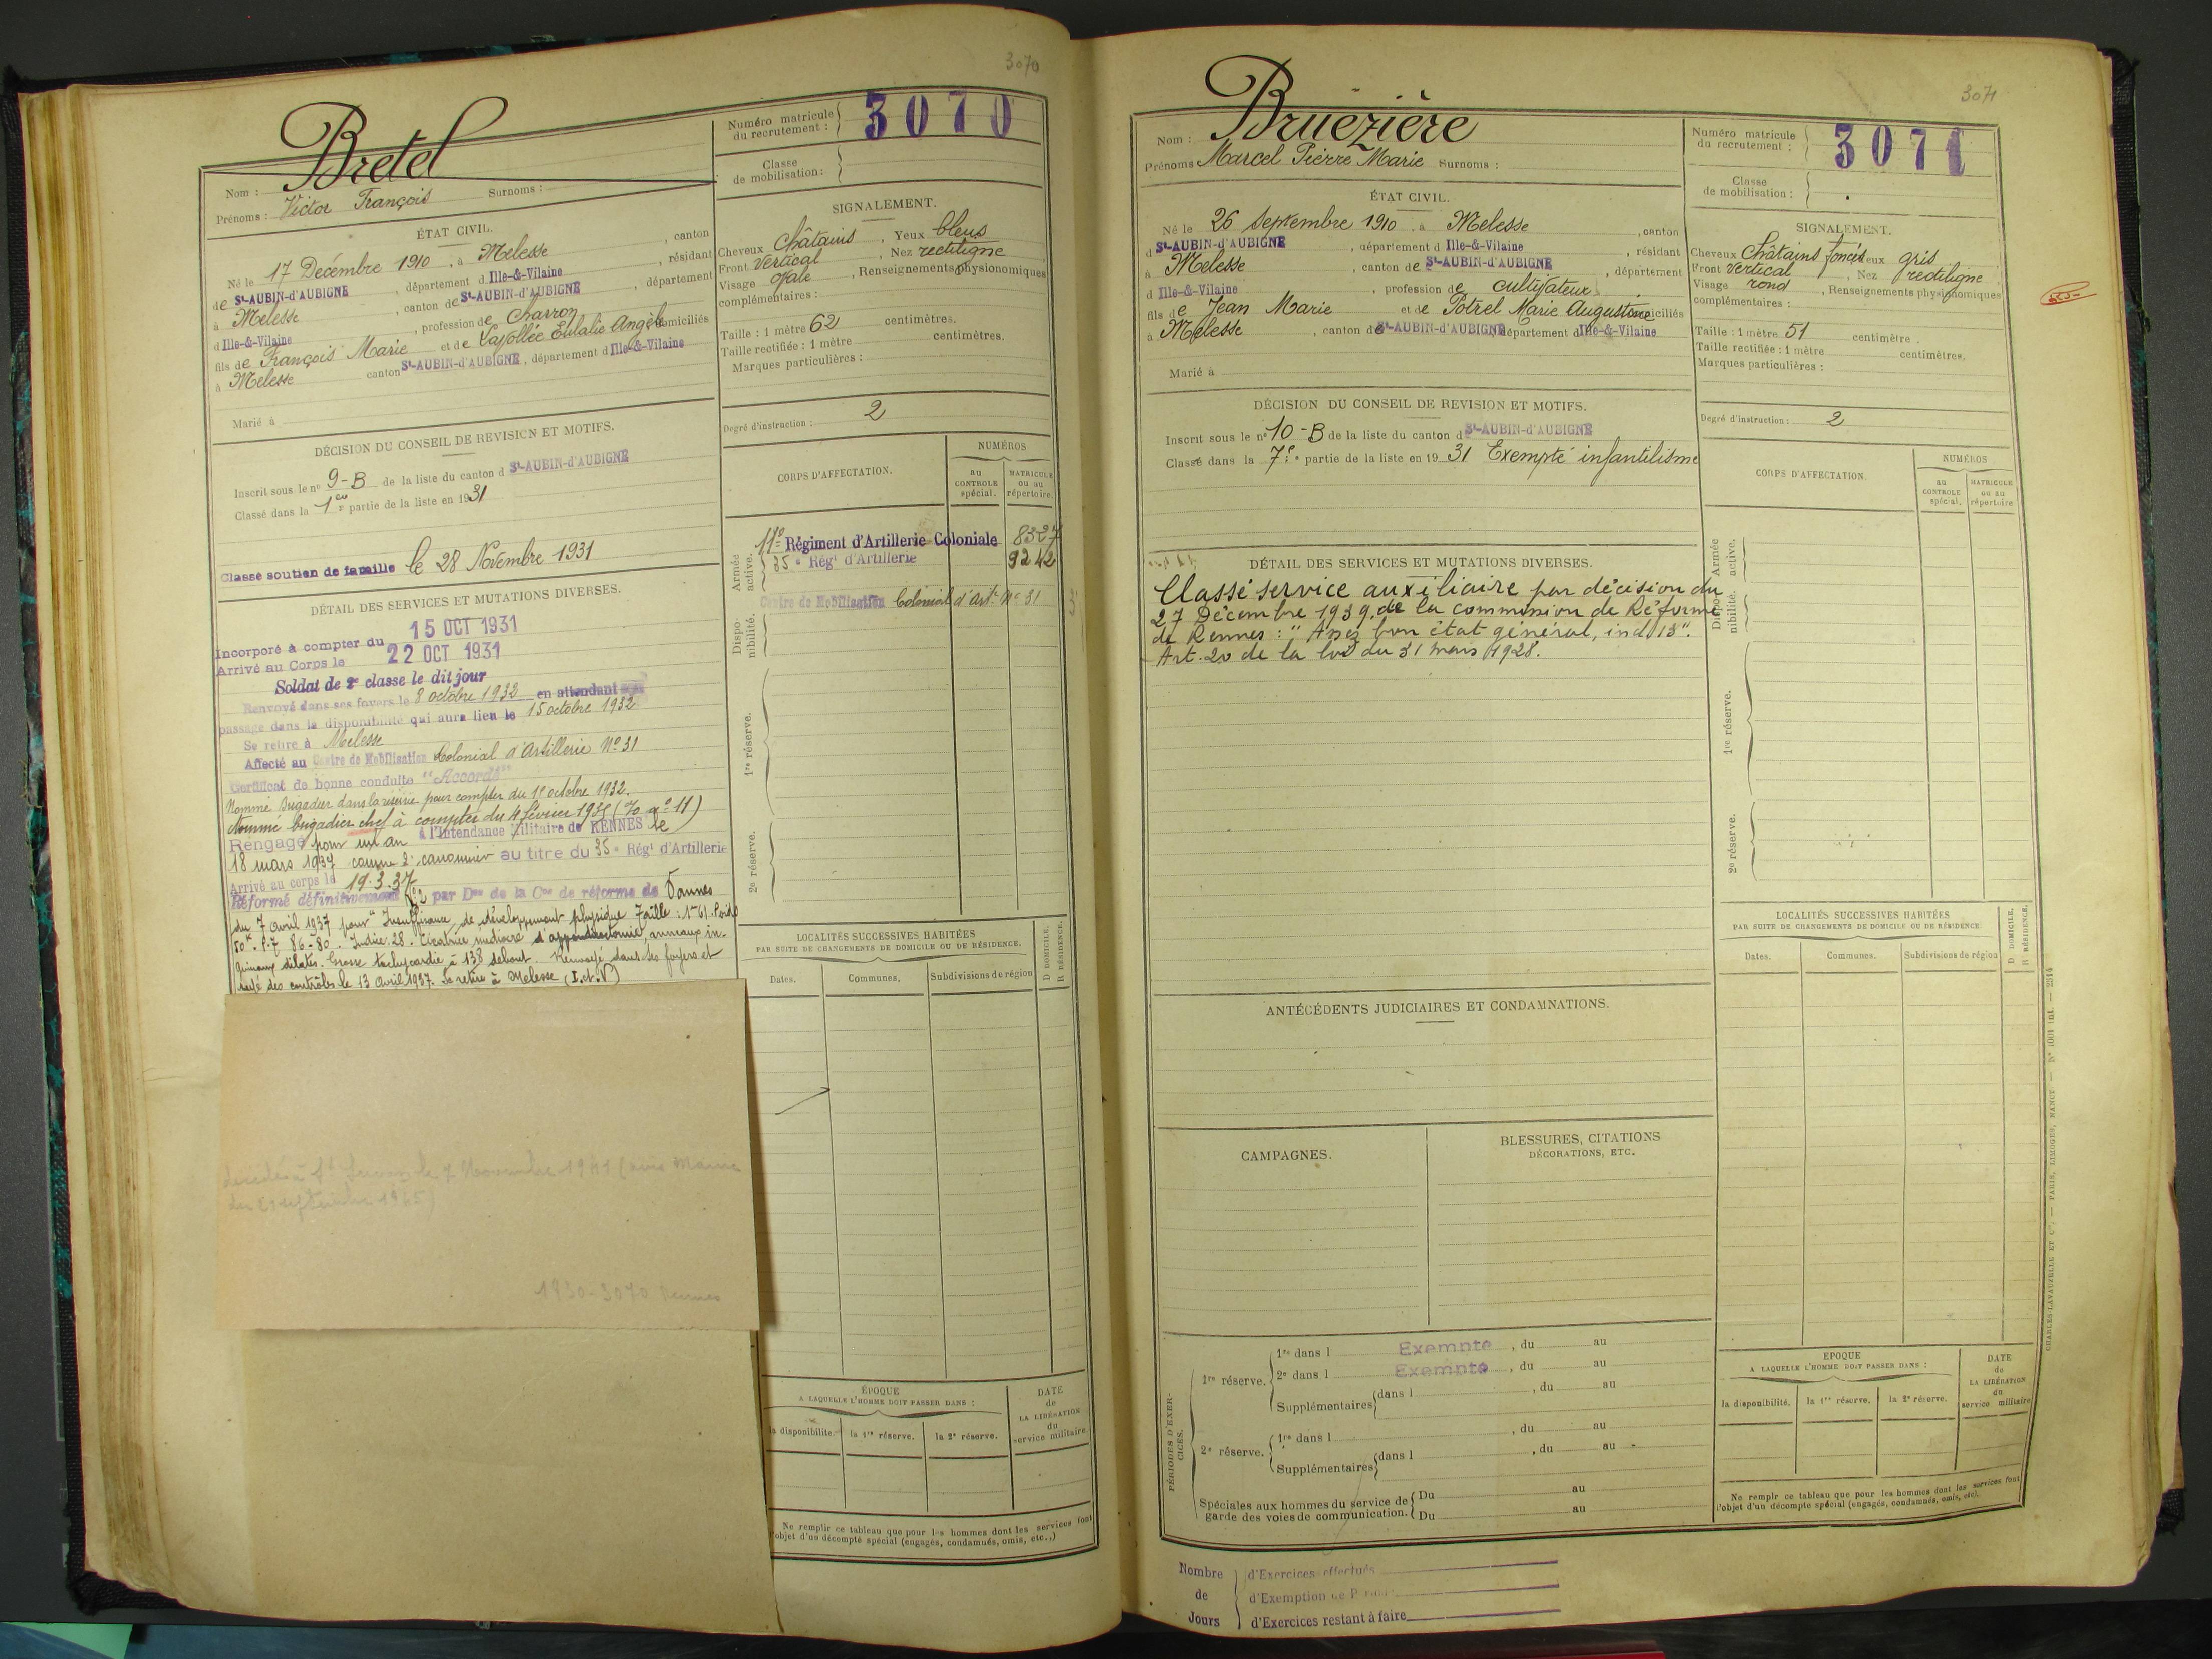 3070
Bretel
Nom :
Prénoms : Victor François Surnoms :
Numéro matricule du recrutement : 3070
Classe de mobilisation :
ÉTAT CIVIL.
Né le 17 Décembre 1910, à Melesse, canton
de St-AUBIN-d'AUBIGNE, département d Ille-&-Vilaine, résidant
à Melesse, canton de St-AUBIN-d'AUBIGNE, département
d Ille-&-Vilaine, profession de Charron
fils de François Marie et de Eulalie Angèle domiciliés
à Melesse canton St-AUBIN-d'AUBIGNE, département d Ille-&-Vilaine
Marié à
SIGNALEMENT.
Cheveux Châtains, Yeux bleus
Front Vertical, Nez rectiligne
Visage Ovale, Renseignements physionomiques
complémentaires :
Taille : 1 mètre 62 centimètres.
Taille rectifiée : 1 mètre centimètres.
Marques particulières :
Degré d'instruction : 2
DÉCISION DU CONSEIL DE REVISION ET MOTIFS.
Inscrit sous le n° 9-B de la liste du canton d St-AUBIN-d'AUBIGNE
Classé dans la 1ère partie de la liste en 1931
Classé soutien de famille le 28 Novembre 1931
CORPS D'AFFECTATION.
NUMÉROS
au CONTROLE spécial.
MATRICULE ou au répertoire.
Armée active.
11e Régiment d'Artillerie Coloniale 8327
35e Régt d'Artillerie 9242
Disponibilité.
Centre de Mobilisation Colonial d'Art. N° 31
1re réserve.
2e réserve.
DÉTAIL DES SERVICES ET MUTATIONS DIVERSES.
Incorporé à compter du 15 OCT 1931
Arrivé au Corps le 22 OCT 1931
Soldat de 2e classe le dit jour
Renvoyé dans ses foyers le 8 octobre 1932 en attendant
passage dans la disponibilité qui aura lieu le 15 octobre 1932
Se retire à Melesse
Affecté au Centre de Mobilisation Colonial d'Artillerie N° 31
Certificat de bonne conduite "Accordé"
Nommé Brigadier dans la réserve pour compter du octobre 1932.
Nommé brigadier chef à compter du 4 février 1935 (n° 11)
Rengagé pour un an à l'Intendance Militaire de RENNES le
18 mars 1937 comme 2e canonnier au titre du 35e Régt d'Artillerie
Arrivé au corps le 19.3.37
Réformé définitivement N°2 par Don de la Con de réforme de Vannes
du 7 avril 1937 pour "Insuffisance de développement physique Taille : 1m61. Poids
50k. P.T 86-80. Indice 28. Cicatrice médiocre d'appendicectomie, anneaux in-
guinaux dilatés. Grosse tachycardie à 138 debout. Renvoyé dans ses foyers et
rayé des contrôles le 13 avril 1937. Se retire à Melesse (I.et.V)
le 7 Novembre 1941 (avis Mairie
1930-3070 Rennes
LOCALITÉS SUCCESSIVES HABITÉES
PAR SUITE DE CHANGEMENTS DE DOMICILE OU DE RÉSIDENCE.
Dates. Communes. Subdivisions de région
D DOMICILE, R RÉSIDENCE.
ÉPOQUE
A LAQUELLE L'HOMME DOIT PASSER DANS :
la disponibilité. la 1re réserve. la 2e réserve.
DATE de LA LIBÉRATION du service militaire
Ne remplir ce tableau que pour les hommes dont les services font
l'objet d'un décompte spécial (engagés, condamnés, omis, etc..)
3071
Nom : Bruézière
Prénoms Marcel Pierre Marie Surnoms :
Numéro matricule du recrutement : 3071
Classe de mobilisation :
ÉTAT CIVIL.
Né le 26 Septembre 1910, à Melesse, canton
d St-AUBIN-d'AUBIGNE, département d Ille-&-Vilaine, résidant
à Melesse, canton de St-AUBIN-d'AUBIGNE, département
d Ille-&-Vilaine, profession de cultivateur
fils de Jean Marie et de Potrel Marie Augustine domiciliés
à Melesse, canton de St-AUBIN-d'AUBIGNE département d Ille-&-Vilaine
Marié à
SIGNALEMENT.
Cheveux Châtains foncés Yeux gris
Front Vertical, Nez rectiligne
Visage rond, Renseignements physionomiques
complémentaires :
Taille : 1 mètre 51 centimètre.
Taille rectifiée : 1 mètre centimètres.
Marques particulières :
Degré d'instruction : 2
DÉCISION DU CONSEIL DE REVISION ET MOTIFS.
Inscrit sous le n° 10-B de la liste du canton d St-AUBIN-d'AUBIGNE
Classé dans la 7e partie de la liste en 1931 Exempté infantilisme
CORPS D'AFFECTATION.
NUMÉROS
au CONTROLE spécial.
MATRICULE ou au répertoire
Armée active.
Disponibilité.
1re réserve.
2e réserve.
DÉTAIL DES SERVICES ET MUTATIONS DIVERSES.
Classé service auxiliaire par décision du
27 Décembre 1939 de la commission de Réforme
de Rennes : "Assez bon état général, ind 13".
Art. 20 de la loi du 31 mars 1928.
ANTÉCÉDENTS JUDICIAIRES ET CONDAMNATIONS.
CAMPAGNES.
BLESSURES, CITATIONS
DÉCORATIONS, ETC.
LOCALITÉS SUCCESSIVES HABITÉES
PAR SUITE DE CHANGEMENTS DE DOMICILE OU DE RÉSIDENCE
Dates. Communes. Subdivisions de région
D DOMICILE, R RÉSIDENCE.
PÉRIODES D'EXERCICES.
1re réserve.
1re dans l Exempte, du au
2e dans l Exempte, du au
Supplémentaires dans l, du au
2e réserve.
1re dans l, du au
Supplémentaires dans l, du au
Spéciales aux hommes du service de garde des voies de communication.
Du au
Du au
ÉPOQUE
A LAQUELLE L'HOMME DOIT PASSER DANS :
la disponibilité. la 1re réserve. la 2e réserve.
DATE de LA LIBÉRATION du service militaire
Ne remplir ce tableau que pour les hommes dont les services font
l'objet d'un décompte spécial (engagés, condamnés, omis, etc).
CHARLES-LAVAUZELLE ET Cie, — PARIS, LIMOGES, NANCY
Nombre de Jours
d'Exercices effectués
d'Exemption de
d'Exercices restant à faire